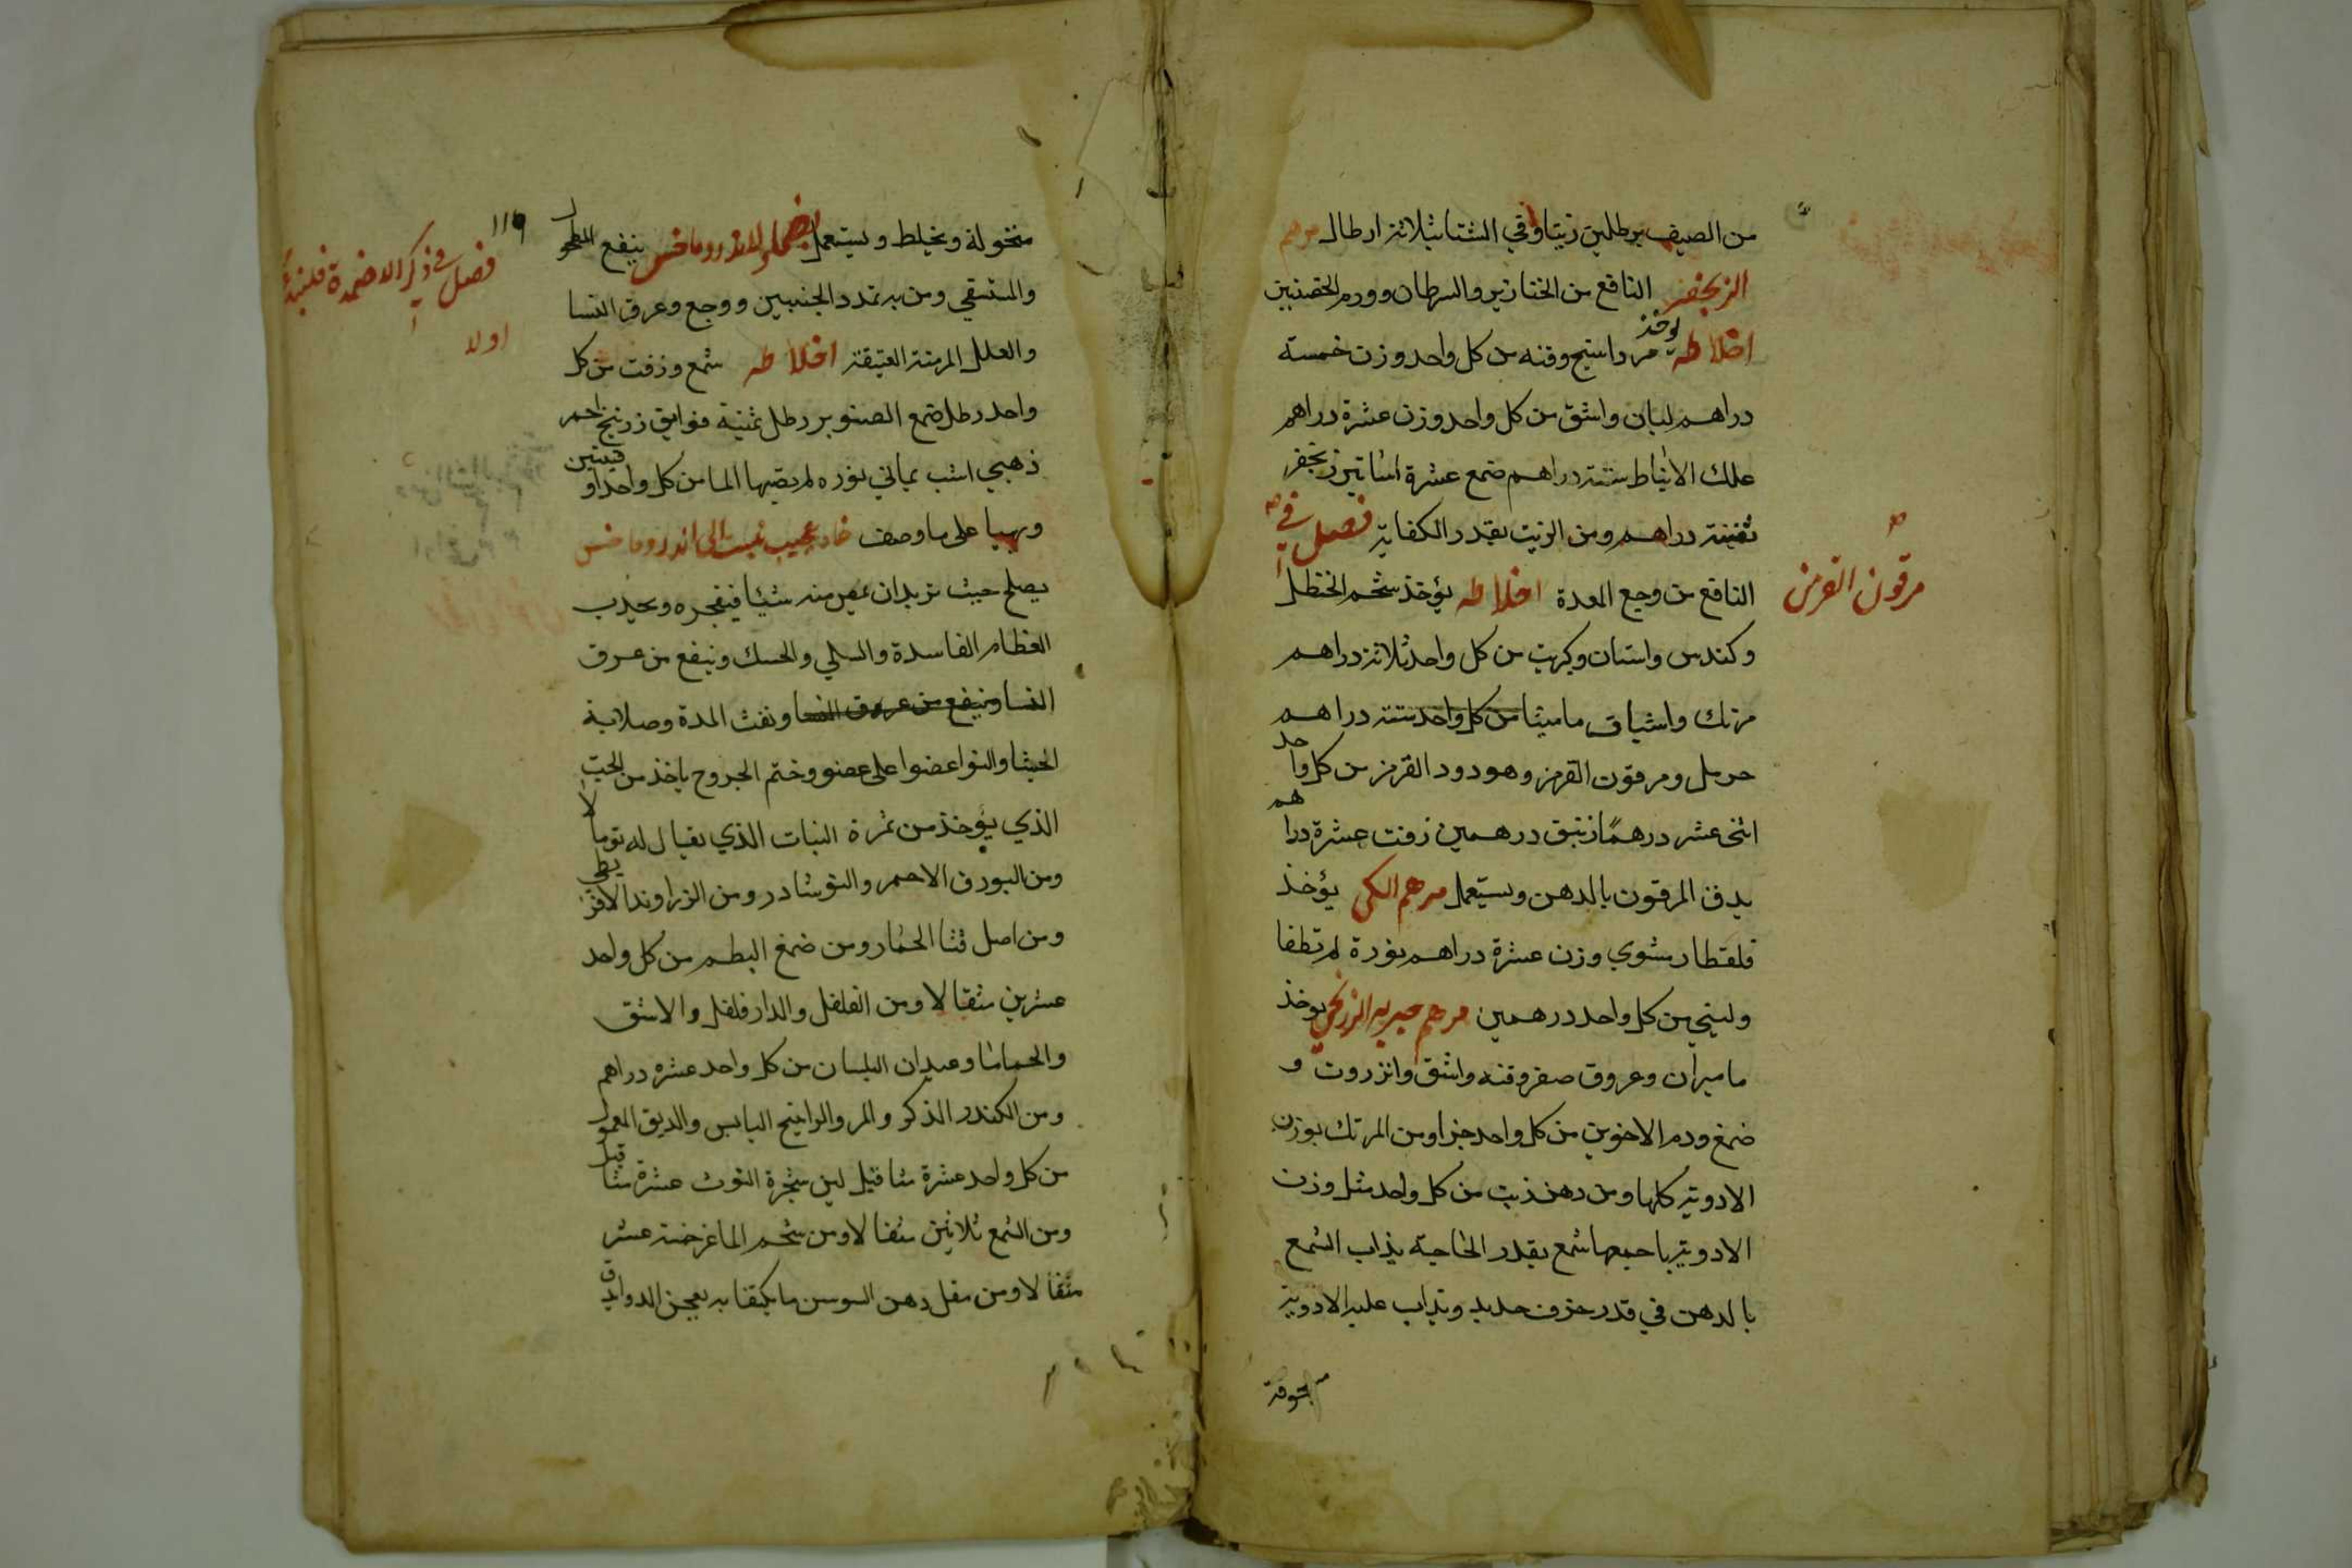 من الصيف برطلين زيتا وفي الشتا بثلاثة ارطال مرهم
الزنجفر النافع من الخنازير والسرطان وورم الخصيتين
اخلاطه يوخذ مرداسنج وقنه من كل واحد وزن خمسة
دراهم لبان واشق من كل واحد وزن عشرة دراهم
علك الانباط ستة دراهم صمغ عشرة اساتير زنجفر
دراهم ومن الزيت بقدر الكفاية فصل في
النافع من وجع المعدة اخلاطه يؤخذ شحم الحنظل
مرقون القرمز
وكندس واشنان وكبريت من كل واحد ثلاثة دراهم
مرتك واشياف ماميثا من كل واحد ستة دراهم
حرمل ومرقون القرمز وهو دود القرمز من كل واحد
اثنى عشر درهمًا زئبق درهمين زفت عشرة دراهم
يدق المرقون بالدهن ويستعمل مرهم الكي يؤخذ
قلقطار مشوي وزن عشرة دراهم نورة لم تطفا
من كل واحد درهمين مرهم يوخذ
ماميران وعروق صفر وقنه واشق وانزروت و
صمغ ودم الاخوين من كل واحد جزا ومن المرتك بوزن
الادوية كلها ومن دهن زيت من كل واحد مثل وزن
الادوية باجمعها شمع بقدر الحاجة يذاب الشمع
بالدهن في قدر خزف جديد ويذاب عليه الادوية
منخولة
١١٩
فصل في ذكر الاضمدة
اولا
منخولة ويخلط ويستعمل ينفع المطحول
والمستسقي ومن به تمدد الجنبين ووجع وعرق النسا
والعلل المزمنة العتيقة اخلاطه شمع وزفت من كل
واحد رطل صمغ الصنوبر رطل زرنيخ احمر
ذهبي اشب يماني نوره لم يصبها الما من كل واحد اوقيتين
ويهيا على ما وصف ضماد عجيب ينسب الى اندروماخس
يصلح حيث تريد ان منه شيئا فيفجره ويجذب
العظام الفاسدة والسلي والحسك وينفع من عرق
النسا وينفع من عروق النسا ونفث المدة وصلابة
عضوا على عضو وختم الجروح ياخذ من الحب
الذي يؤخذ من ثمرة النبات الذي يقال له
ومن البورق الاحمر والنوشادر ومن الزراوند الاقريطي
ومن اصل قثا الحمار ومن صمغ البطم من كل واحد
عشرين مثقالا ومن الفلفل والدارفلفل والاشق
والحماما وعيدان البلسان من كل واحد عشره دراهم
ومن الكندر الذكر والمر والراتينج اليابس والدبق المعمول
من كل واحد عشرة مثاقيل لبن شجرة التوت عشرة مثاقيل
ومن الشمع ثلاثين مثقالا ومن شحم الماعز خمسة عشر
مثقالا ومن دهن السوسن ما يكتفا به يعجن